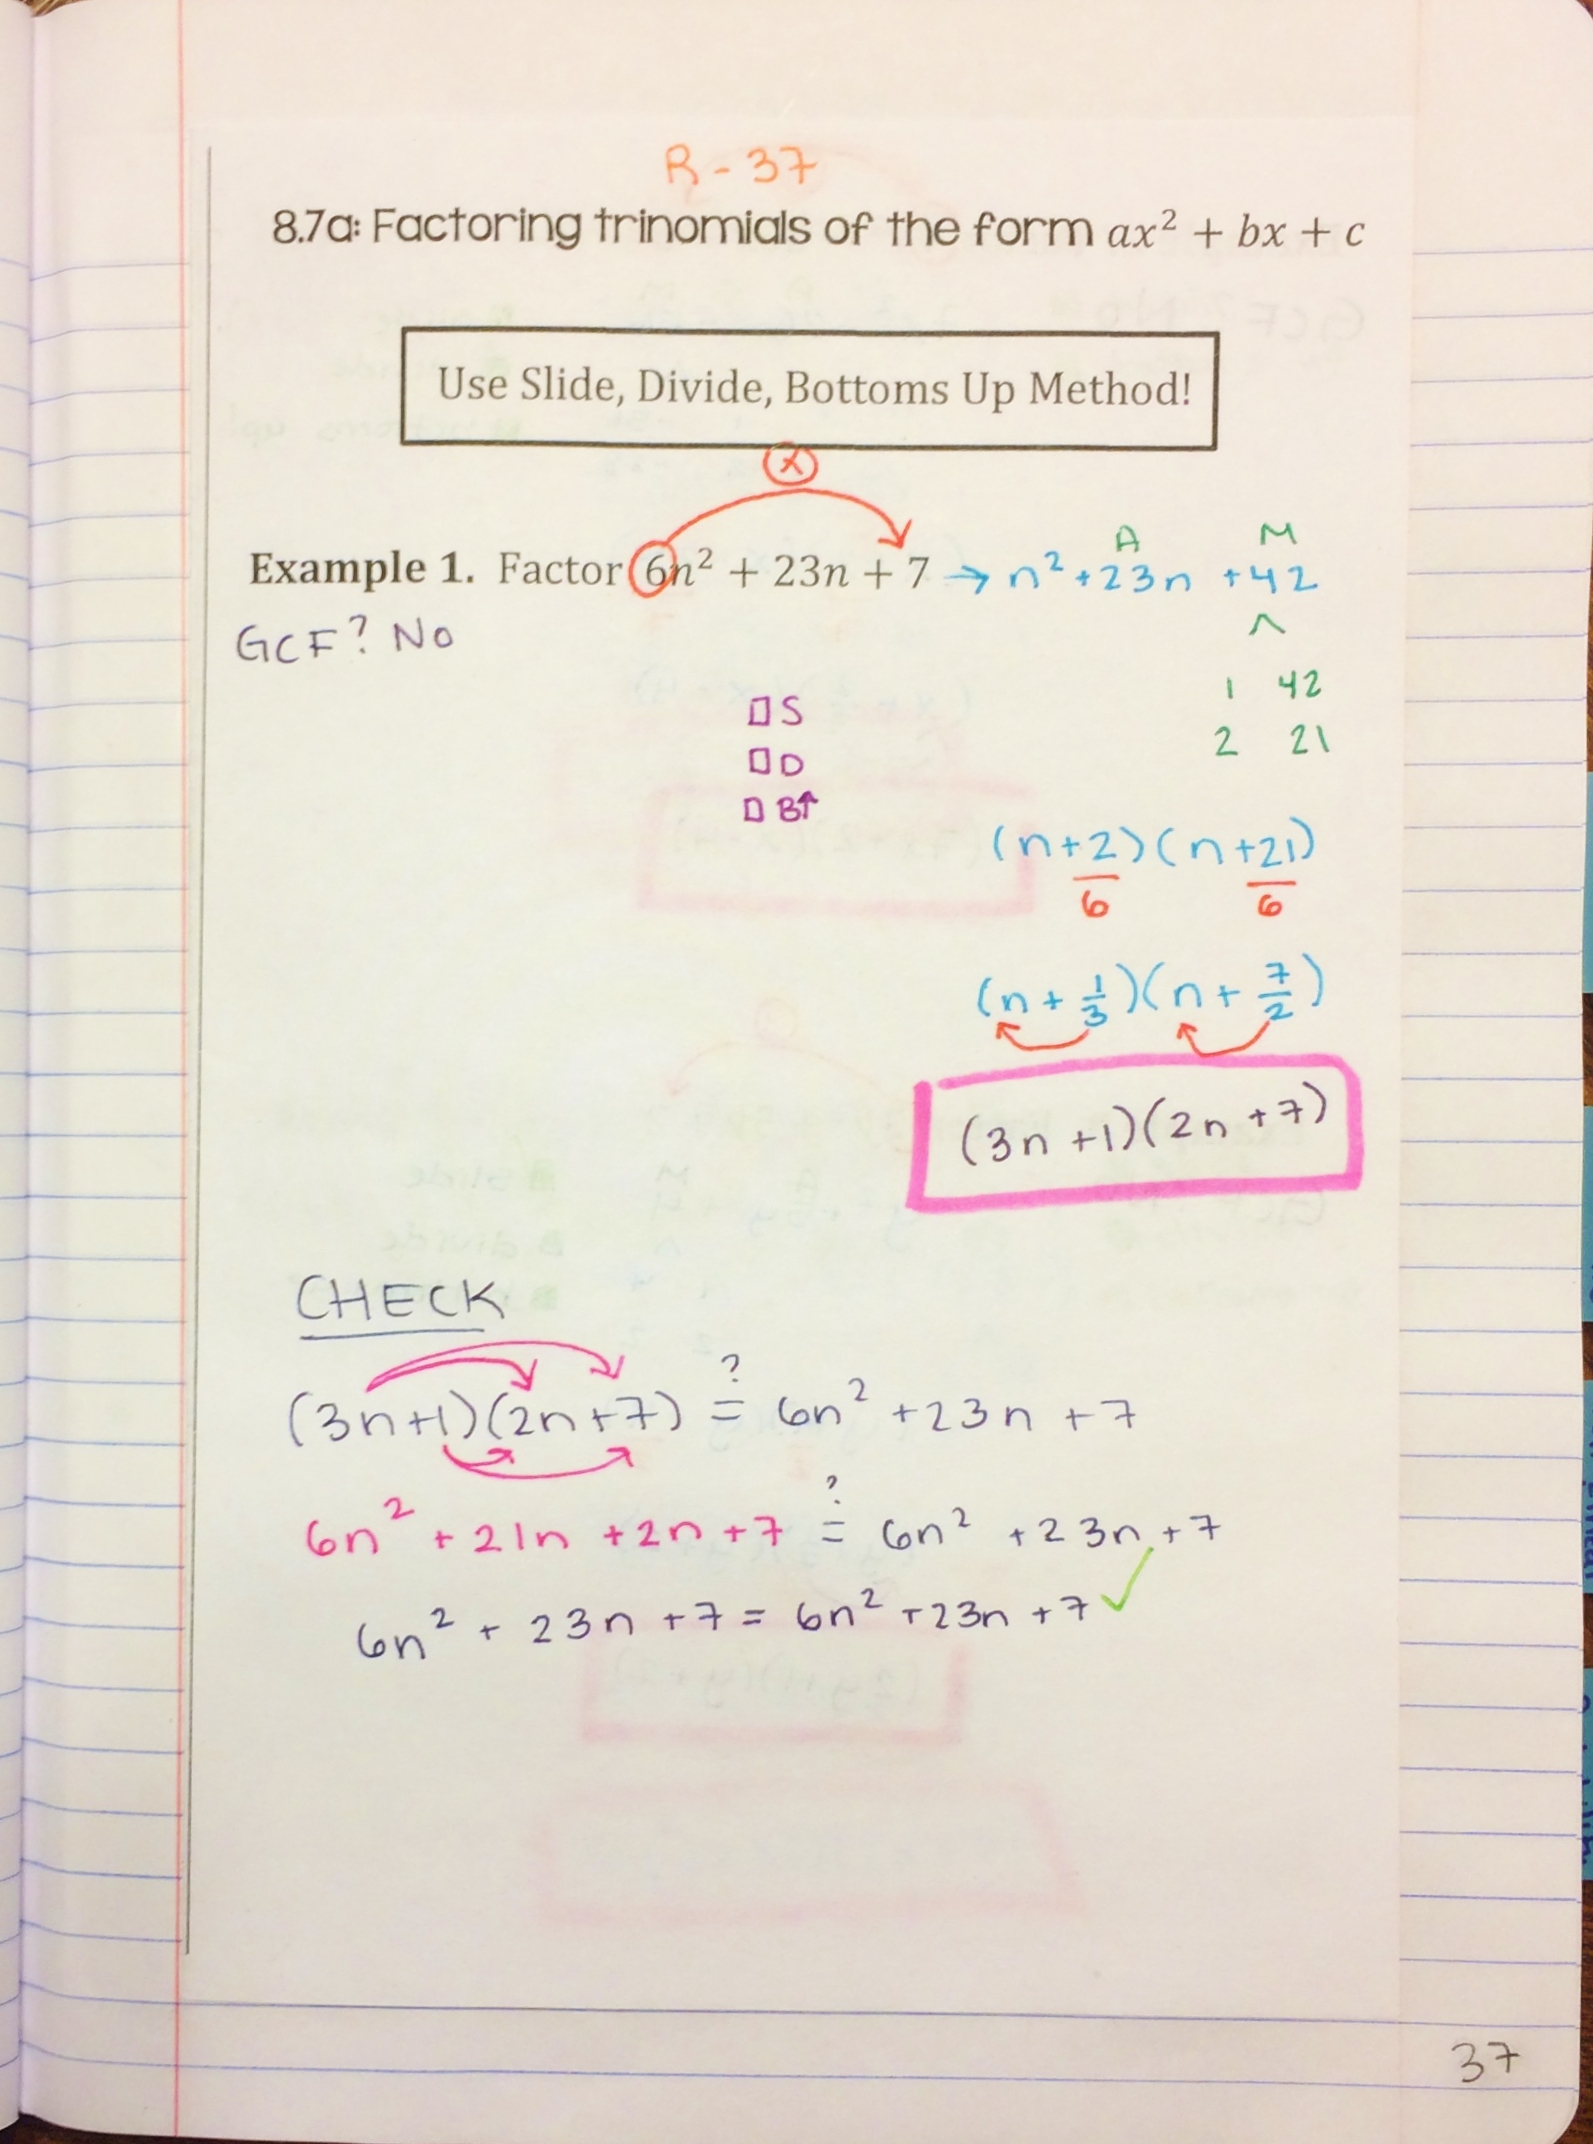 R - 37
8.7a: Factoring trinomials of the form ax² + bx + c
Use Slide, Divide, Bottoms Up Method!
x
A M
Example 1. Factor 6n² + 23n + 7 → n² + 23n + 42
GCF? No
1 42
□ S
2 21
□ D
□ B↑
(n+2)(n+21)
6 6
(n + 1/3)(n + 7/2)
(3n +1)(2n +7)
CHECK
(3n+1)(2n+7) ≟ 6n² + 23n + 7
6n² + 21n + 2n + 7 ≟ 6n² + 23n + 7
6n² + 23n + 7 = 6n² + 23n + 7 ✓
37